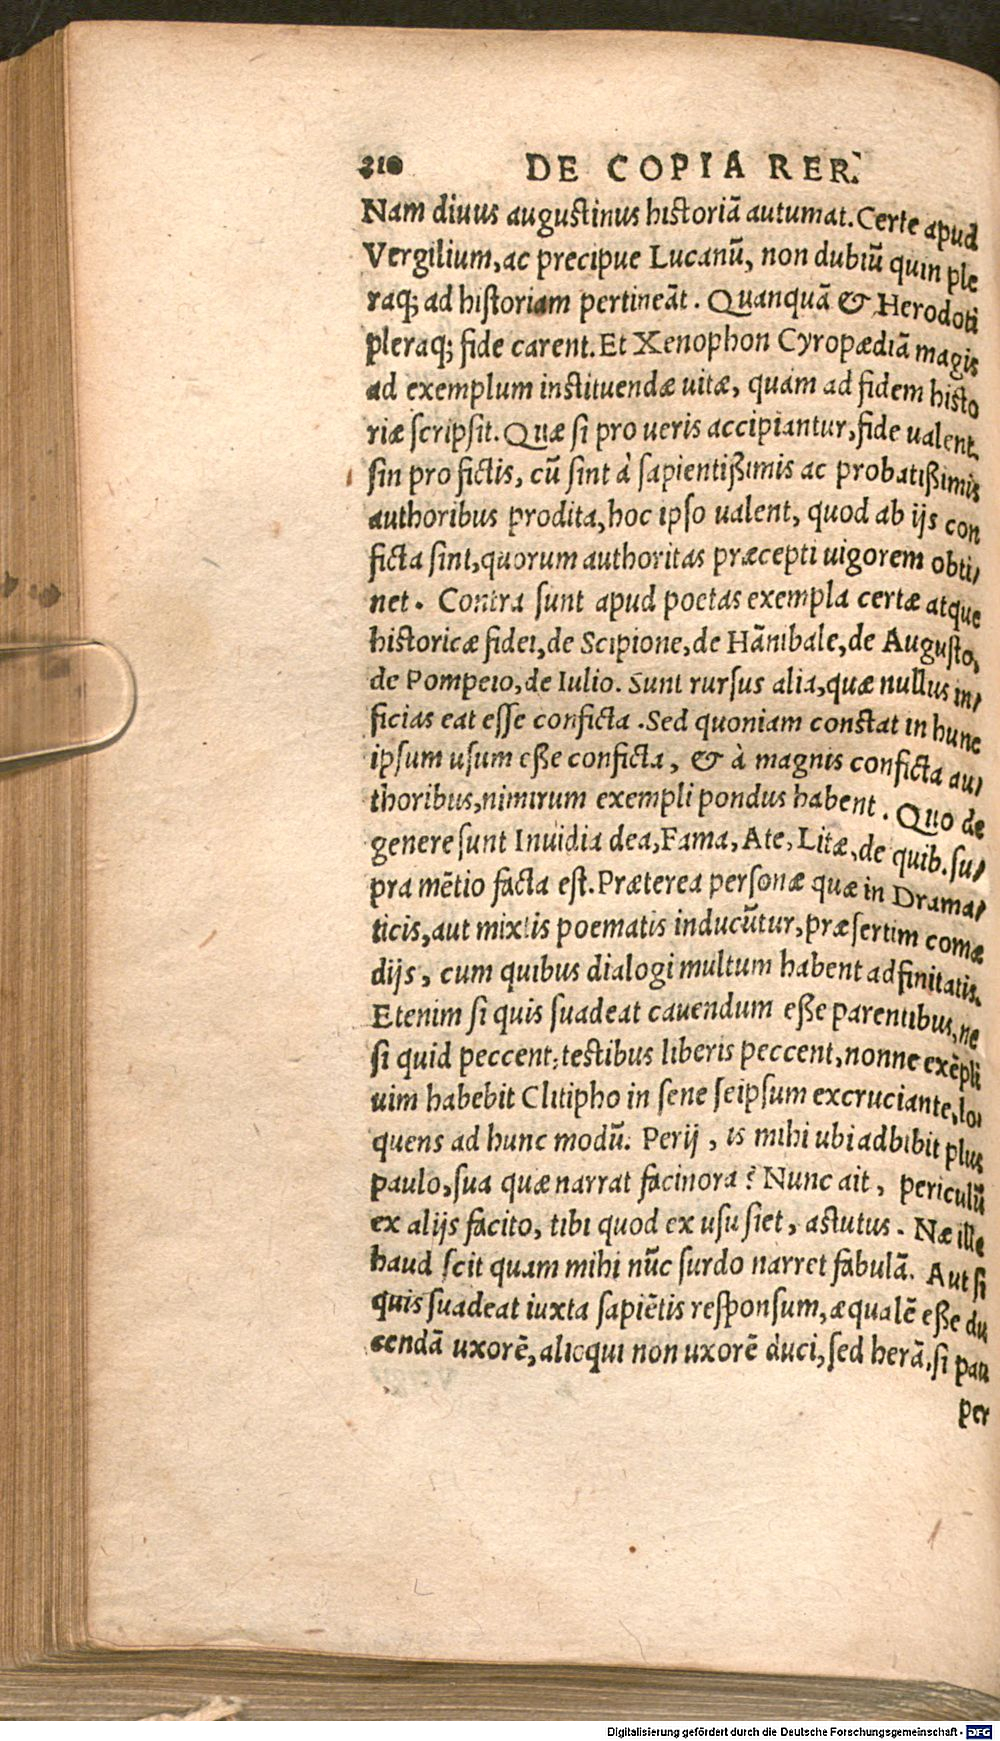 210 DE COPIA RER.
Nam divus augustinus historiā autumat. Certe apud
Vergilium, ac precipue Lucanū, non dubiū quin ple
raq; ad historiam pertineāt. Quanquā & Herodoti
pleraq; fide carent. Et Xenophon Cyropædiā magis
ad exemplum instituendæ uitæ, quam ad fidem histo
riæ scripsit. Quæ si pro ueris accipiantur, fide ualent.
sin pro fictis, cū sint à sapientißimis ac probatißimis
authoribus prodita, hoc ipso ualent, quod ab ijs con
ficta sint, quorum authoritas præcepti uigorem obti/
net. Contra sunt apud poetas exempla certæ atque
historicæ fidei, de Scipione, de Hānibale, de Augusto,
de Pompeio, de Iulio. Sunt rursus alia, quæ nullus in/
ficias eat esse conficta. Sed quoniam constat in hunc
ipsum usum eße conficta, & à magnis conficta au/
thoribus, nimirum exempli pondus habent. Quo de
genere sunt Inuidia dea, Fama, Ate, Litæ, de quib. su/
pra mētio facta est. Præterea personæ quæ in Drama/
ticis, aut mixtis poematis inducūtur, præsertim comœ
dijs, cum quibus dialogi multum habent adfinitatis.
Etenim si quis suadeat cauendum eße parentibus, ne
si quid peccent, testibus liberis peccent, nonne exēpli
uim habebit Clitipho in sene seipsum excruciante, lo/
quens ad hunc modū. Perij, is mihi ubi adbibit plus
paulo, sua quæ narrat facinora? Nunc ait, periculū
ex alijs facito, tibi quod ex usu siet, astutus. Næ ille
haud scit quam mihi nūc surdo narret fabulā. Aut si
quis suadeat iuxta sapiētis responsum, æqualē eße du
cendā uxorē, alioqui non uxorē duci, sed herā, si pau
per
Digitalisierung gefördert durch die Deutsche Forschungsgemeinschaft - DFG